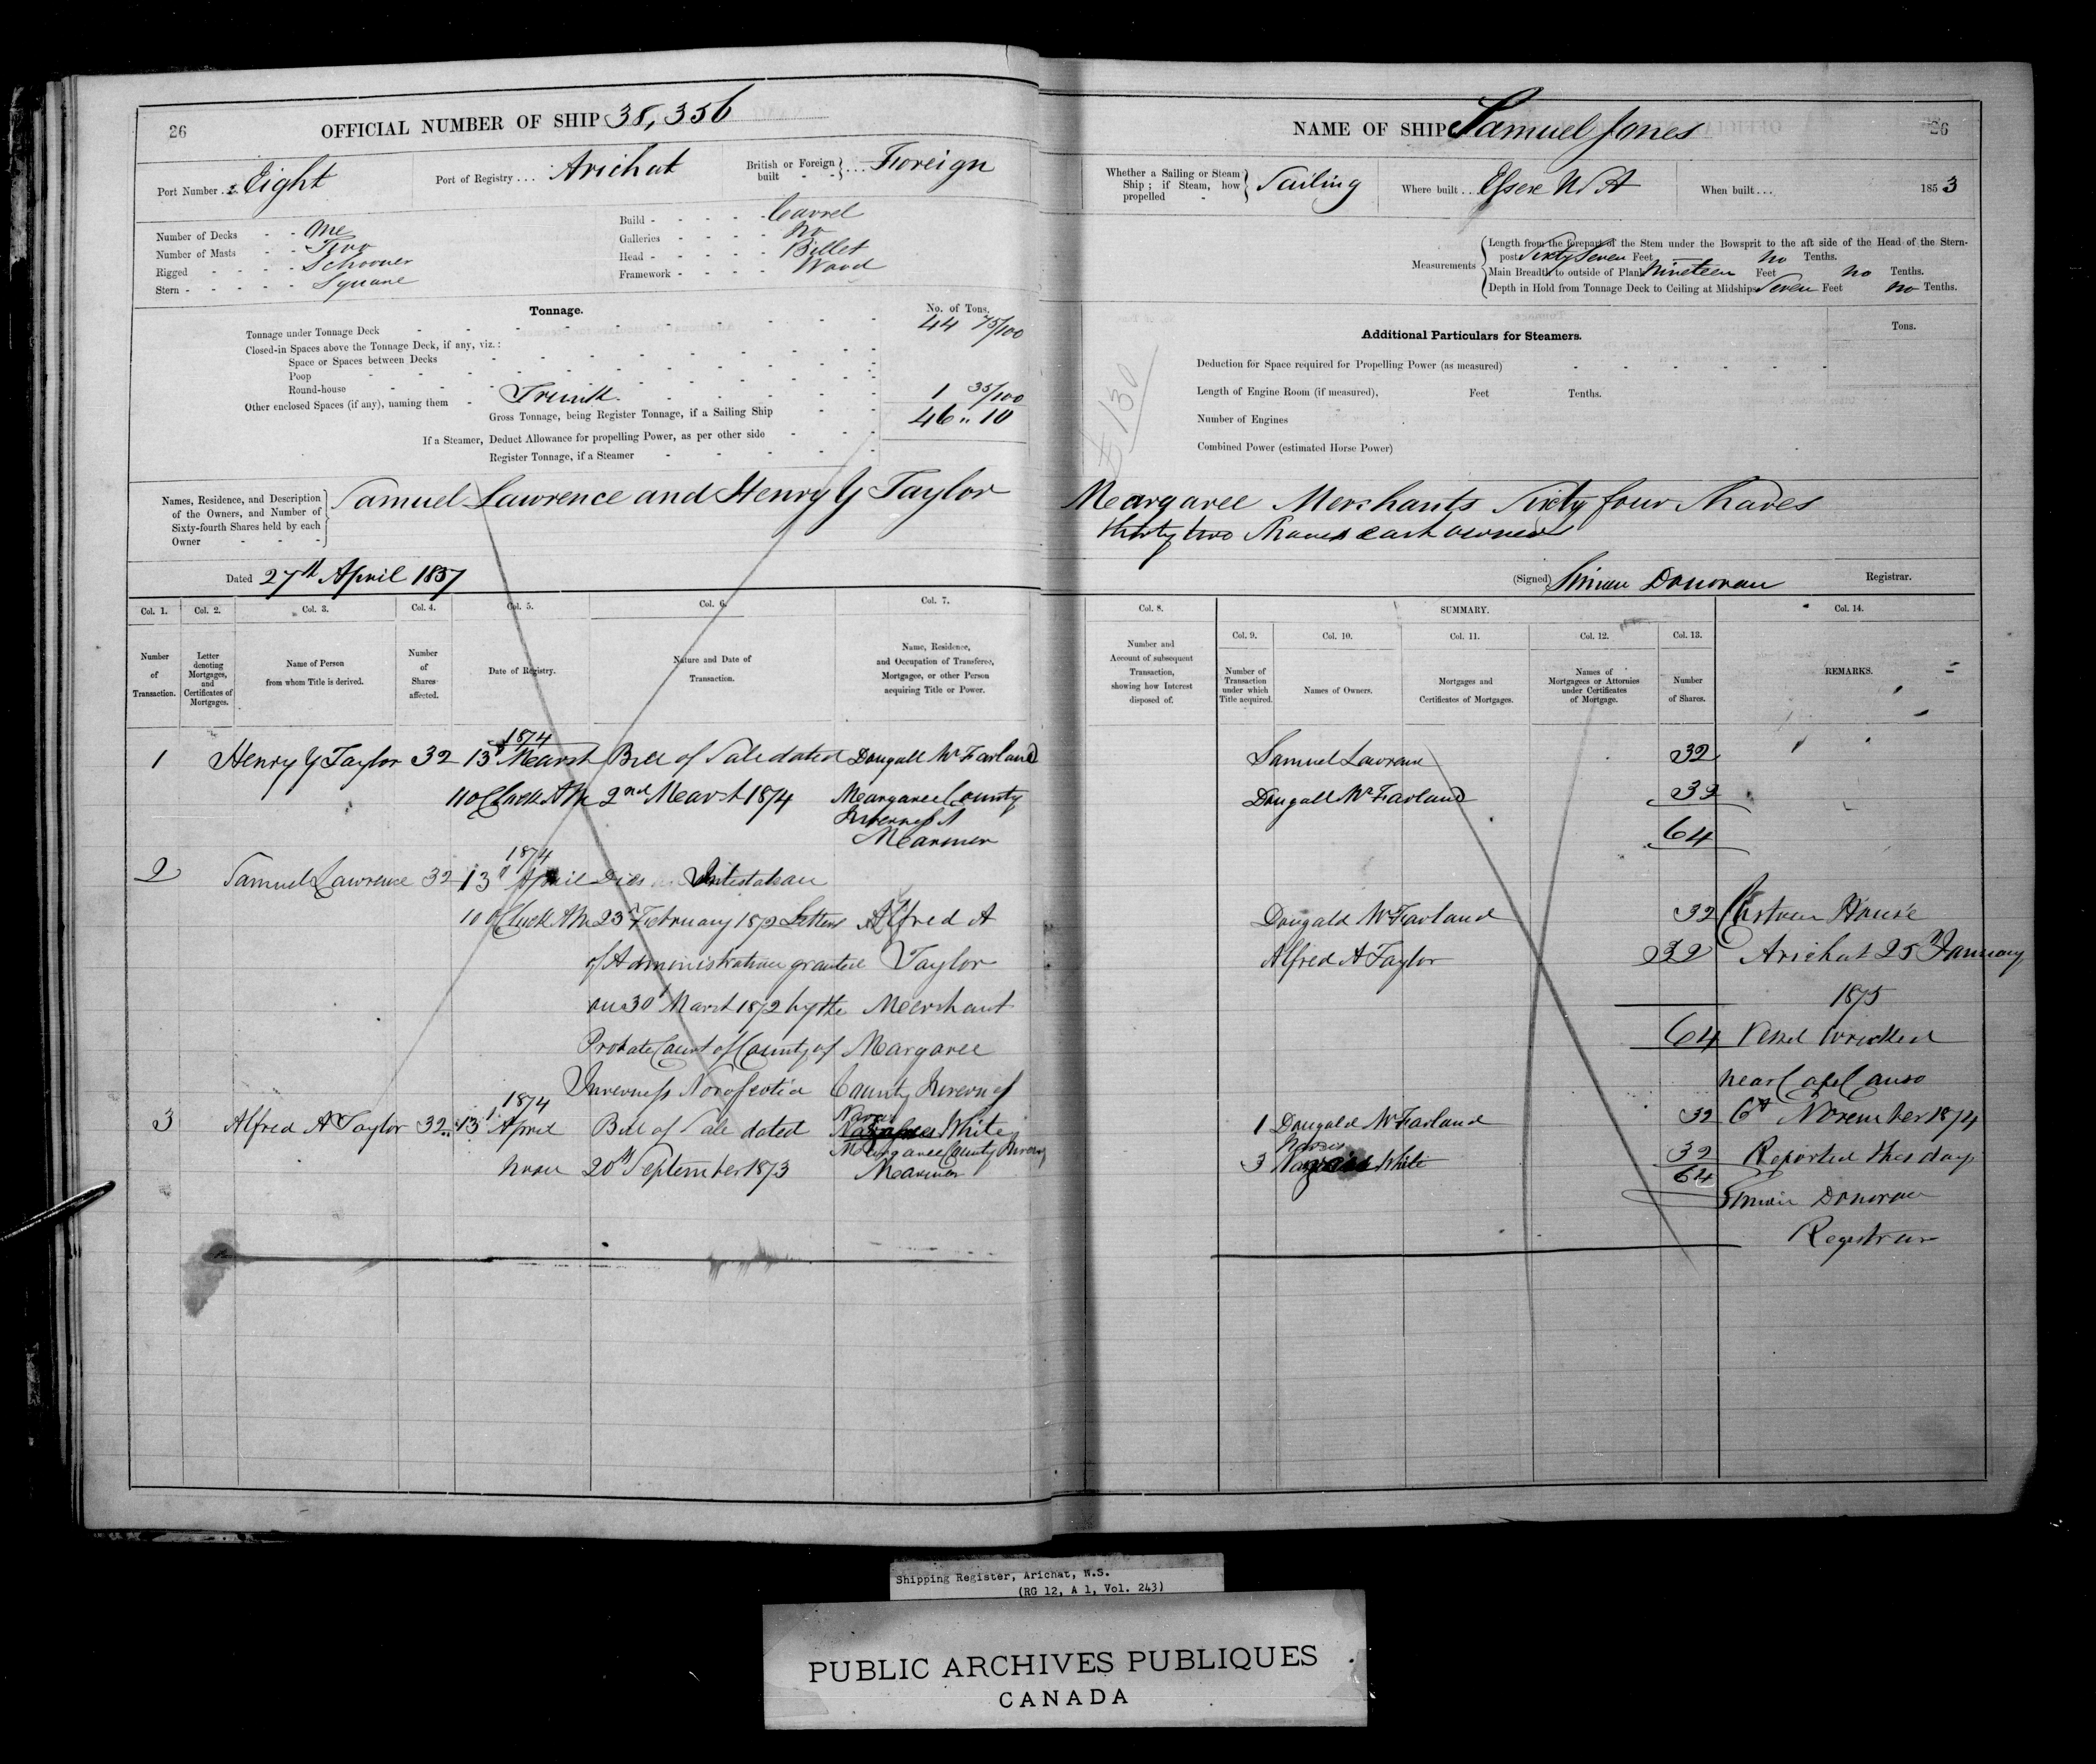 26
OFFICIAL NUMBER OF SHIP 38,356
Port Number Eight
Port of Registry Arichat
British or Foreign built Foreign
Number of Decks One
Number of Masts Two
Rigged Schooner
Stern Square
Build Carvel
Galleries no
Head Billet
Framework Wood
Tonnage.
No. of Tons.
Tonnage under Tonnage Deck 44 75/100
Closed-in Spaces above the Tonnage Deck, if any, viz.:
Space or Spaces between Decks
Poop
Round-house
Other enclosed Spaces (if any), naming them Trunk 1 35/100
Gross Tonnage, being Register Tonnage, if a Sailing Ship 46 " 10
If a Steamer, Deduct Allowance for propelling Power, as per other side
Register Tonnage, if a Steamer
Names, Residence, and Description of the Owners, and Number of Sixty-fourth Shares held by each Owner
Samuel Lawrence and Henry Y Taylor
Dated 27th April 1857
Col. 1. Col. 2. Col. 3. Col. 4. Col. 5. Col. 6. Col. 7.
Number of Transaction.
Letter denoting Mortgages, and Certificates of Mortgages.
Name of Person from whom Title is derived.
Number of Shares affected.
Date of Registry.
Nature and Date of Transaction.
Name, Residence, and Occupation of Transferee, Mortgagee, or other Person acquiring Title or Power.
1874
1 Henry Y Taylor 32 13 March Bill of Sale dated Dougall McFarland
11 OClock AM 2nd March 1874 Margaree County
Inverness
Mariner
1874
2 Samuel Lawrence 32 13 April Dies Intestate
10 OClock AM 23 February 1872 Letters Alfred A
of Administration granted Taylor
on 30 March 1872 by the Merchant
Probate Court of County of Margaree
Inverness Nova Scotia County Inverness
1874
3 Alfred A Taylor 32 13 April Bill of Sale dated White
Margaree County
noon 20th September 1873 Mariner
NAME OF SHIP Samuel Jones
26
Whether a Sailing or Steam Ship; if Steam, how propelled Sailing
Where built Essex
When built 1853
Measurements
Length from the forepart of the Stem under the Bowsprit to the aft side of the Head of the Stern-
post Sixty Seven Feet no Tenths.
Main Breadth to outside of Plank Nineteen Feet no Tenths.
Depth in Hold from Tonnage Deck to Ceiling at Midships Seven Feet no Tenths.
Additional Particulars for Steamers.
Tons.
Deduction for Space required for Propelling Power (as measured)
Length of Engine Room (if measured), Feet Tenths.
Number of Engines
Combined Power (estimated Horse Power)
130
Margaree Merchants Sixty four Shares
thirty two Shares each owner
(Signed) Simon Donovan Registrar.
Col. 8. SUMMARY. Col. 14.
Col. 9. Col. 10. Col. 11. Col. 12. Col. 13.
Number and Account of subsequent Transaction, showing how Interest disposed of.
Number of Transaction under which Title acquired.
Names of Owners.
Mortgages and Certificates of Mortgages.
Names of Mortgagees or Attornies under Certificates of Mortgage.
Number of Shares.
REMARKS.
Samuel Lawrence 32
Dougall McFarland 32
64
Dougald McFarland 32
Alfred A Taylor 32
64
1 Dougald McFarland 32
3 White 32
64
Custom House
Arichat 25th January
1875
Vessel Wrecked
near Cape Canso
6th November 1874
Reported this day
Simon Donovan
Registrar
Shipping Register, Arichat, N.S.
(RG 12, A 1, Vol. 243)
PUBLIC ARCHIVES PUBLIQUES
CANADA